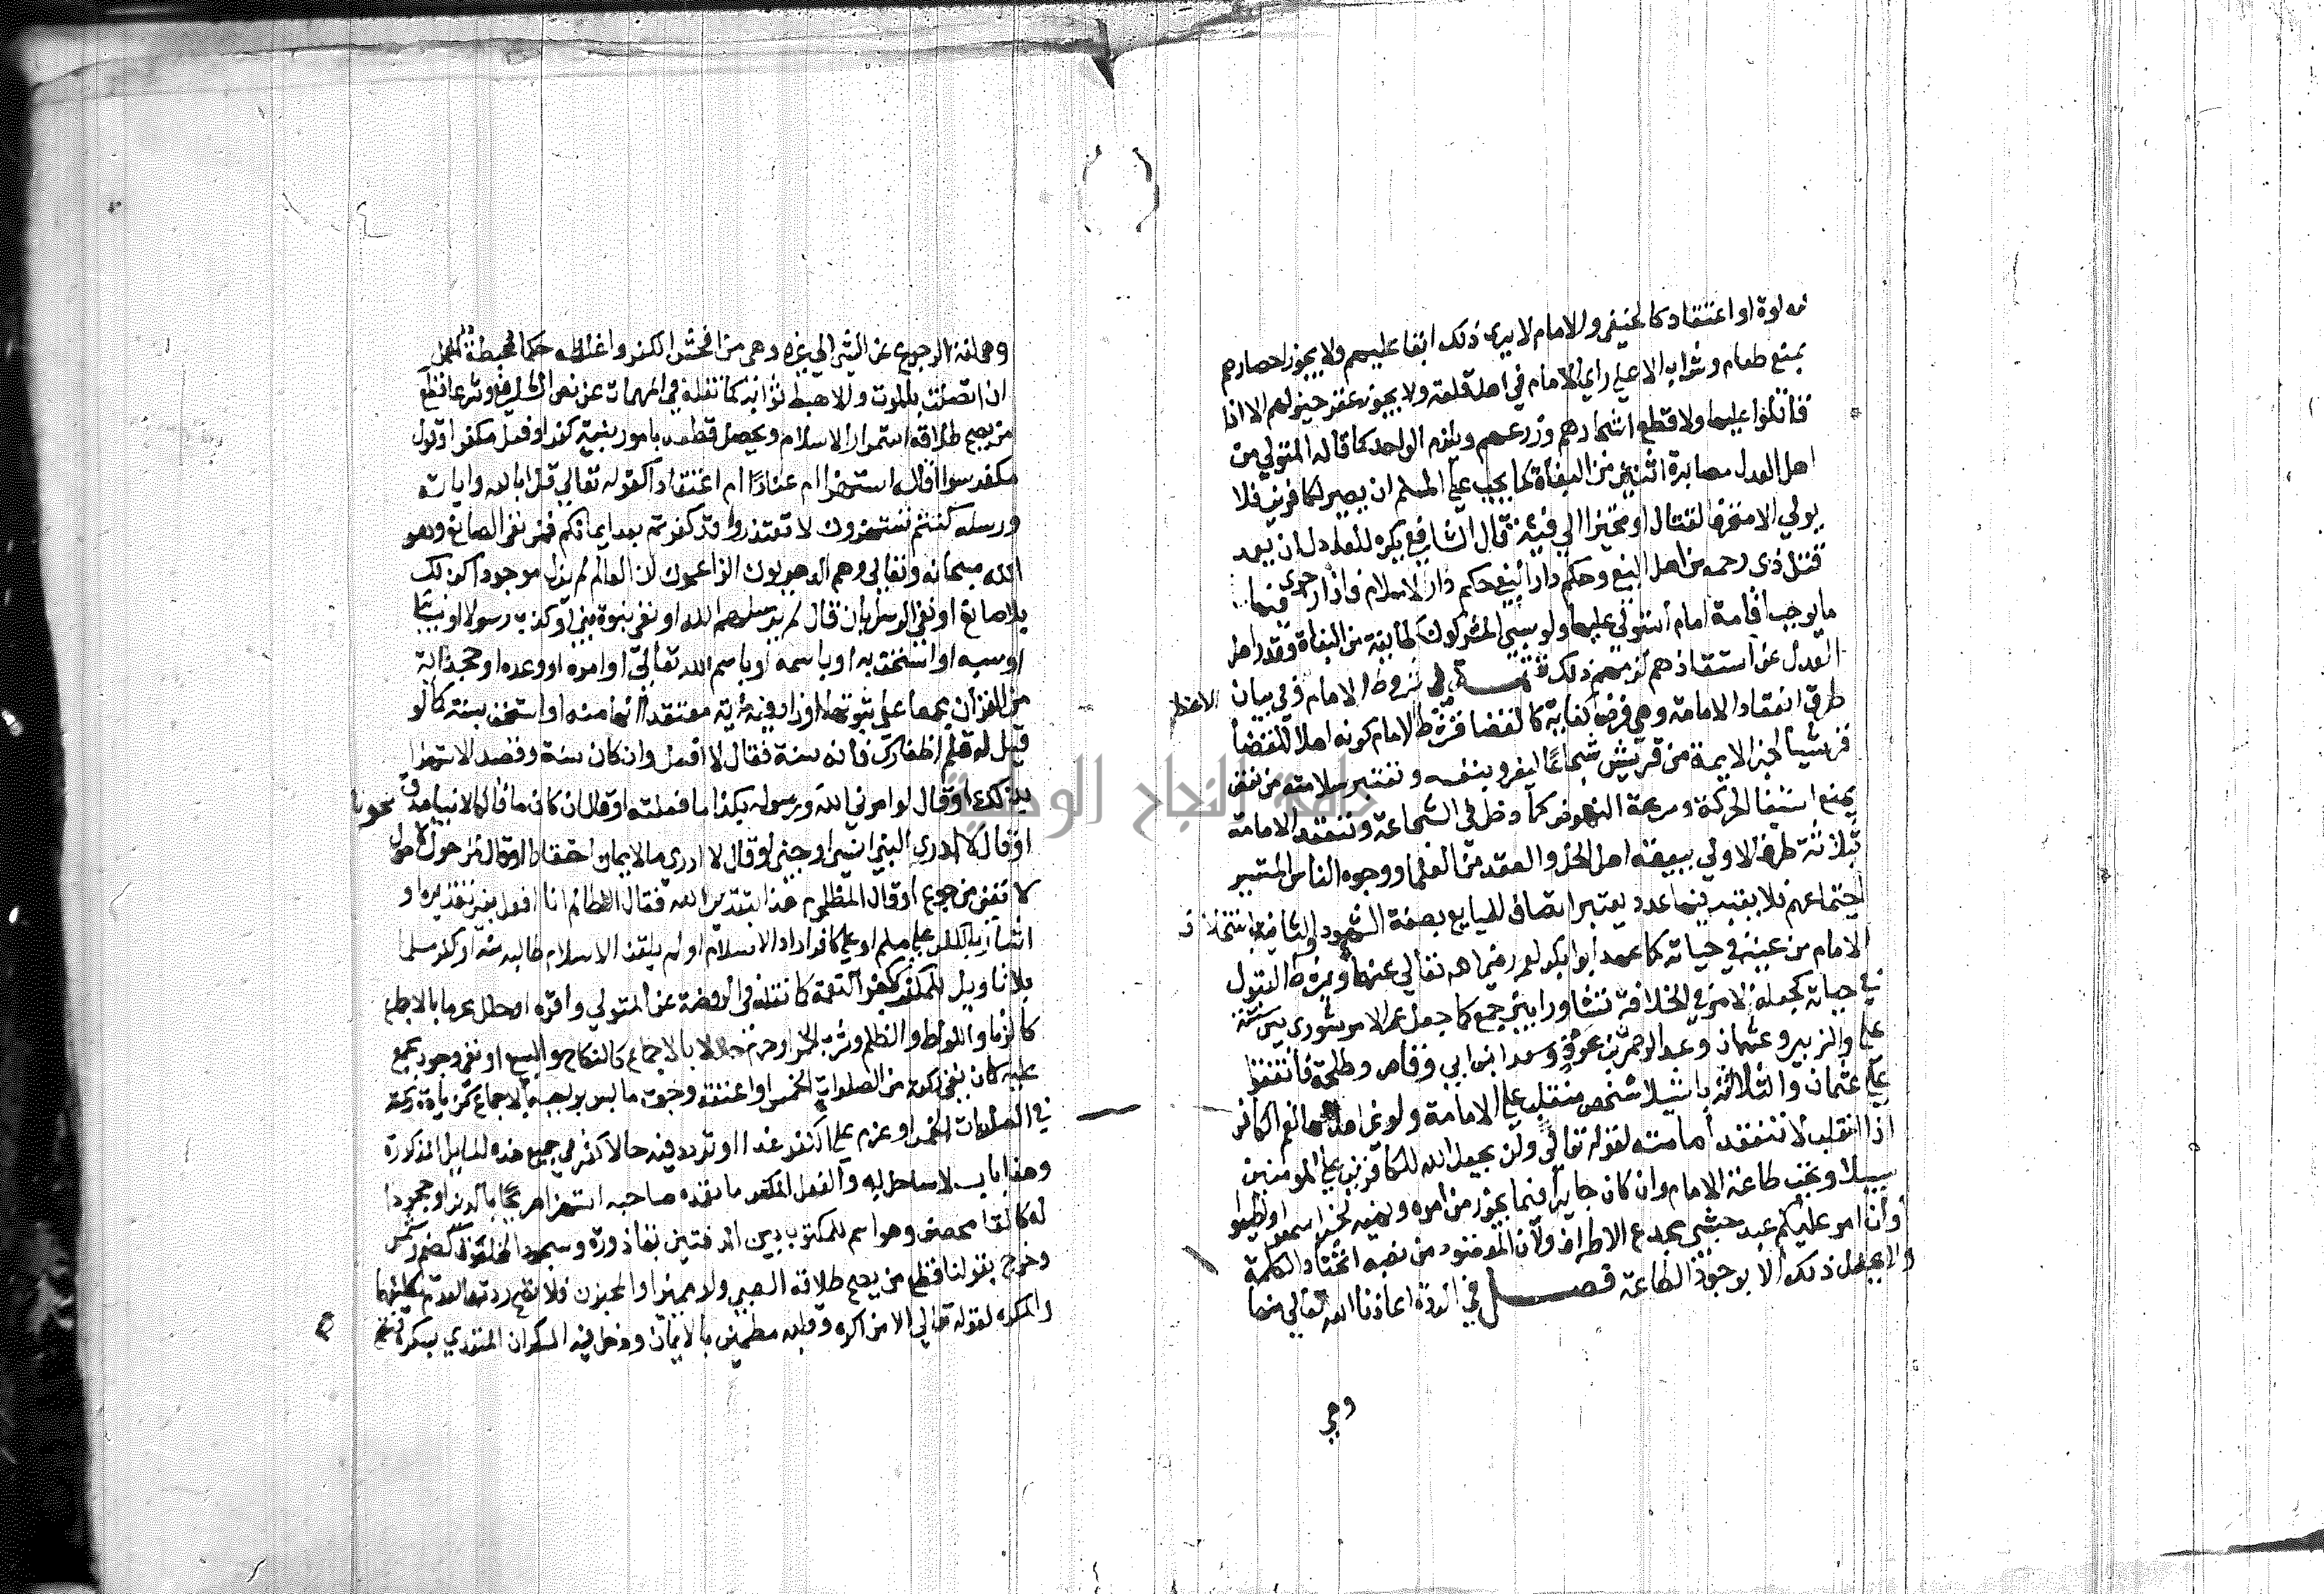 مدلوة او اعتقاد كالحنفي والامام لا يرى ذلك ابقا عليهم ولا يجوز احصارهم
بمنع طعام وشراب الا على راي الامام في اهل قلعة ولا يجوز عقر خيولهم الا اذا
قاتلوا عليها ولا قطع اشجارهم وزرعهم ويلزم الواحد كما قاله المتولي من
اهل العدل مصابرة اثنين من البغاة كما يجب على المسلم ان يصبر لكافرين فلا
يولي الا متحرفا لقتال او متحيزا الي فئة قال الشافعي يكره للعادل ان يعمد
قتل ذي رحمه من اهل البغي وحكم دار البغي حكم دار الاسلام فاذا جرى فيها
ما يوجب اقامة امام استولي عليها ولو سبى المشركون طايفة من البغاة وقدر اهل
العدل على استنقاذهم لزمهم ذلك تتمة في شروط الامام وفي بيان
طرق انعقاد الامامة وهي فرض كفاية كالقضا فشرط الامام كونه اهلا للقضا
قرشيا لخبر الايمة من قريش شجاعا ليغزو بنفسه وتعتبر سلامته من نقص
يمنع استيفا الحركة وسرعة النهوض كما دخل في الشجاعة وتنعقد الامامة
بثلاثة طرق الاولي ببيعة اهل الحل والعقد من العلما ووجوه الناس المتيسر
اجتماعهم فلا يعتبر فيها عدد يعتبر اتصاف المبايع بصفة الشهود والثانية باستخلاف
الامام من عينه في حياته كما عهد ابو بكر لعمر رضي الله تعالي عنهما ويشترط القبول
في حياته كجعله الامر في الخلافة تشاورا بين جمع كما جعل عمر الامر شورى بين ستة
علي والزبير وعثمان وعبد الرحمن بن عوف وسعد ابن ابي وقاص وطلحة فاتفقوا
على عثمان والثالثة باستيلا شخص متغلب على الامامة ولو غير اهل لها نعم الكافر
اذا تغلب لا تنعقد امامته لقوله تعالى ولن يجعل الله للكافرين على المومنين
سبيلا وتجب طاعة الامام وان كان جايرا فيما يجوز من امره ونهيه لخبر اسمعوا واطيعوا
وان امر عليكم عبد حبشي مجدع الاطراف ولان المقصود من نصبه اتحاد الكلمة
ولا يحصل ذلك الا بوجوب الطاعة فصل في الردة اعاذنا الله تعالي منها
وهي
وهي لغة الرجوع عن الشي الي غيره وهي من افحش الكفر واغلظه حكما محبطة للعمل
ان اتصلت بالموت والا حبط ثوابه كما نقله في المهمات عن نص الشافعي وشرعا قطع
من يصح طلاقه استمرار الاسلام ويحصل قطعه بامور بنية كفر او فعل مكفر او قول
مكفر سوا اقاله استهزا ام عنادا ام اعتقادا لقوله تعالي قل ابالله واياته
ورسله كنتم تستهزون لا تعتذروا قد كفرتم بعد ايمانكم فمن نفى الصانع وهو
الله سبحانه وتعالي وهم الدهريون الزاعمون ان العالم لم يزل موجودا كذلك
بلا صانع او نفى الرسل بان قال لم يرسلهم الله او نفى نبوة نبي او كذب رسولا او نبيا
او سبه او استخف به او باسمه او باسم الله تعالى او امره او وعده او جحد اية
من القران مجمعا على ثبوتها او زاد فيه اية معتقدا انها منه او استخف بسنة كما لو
قيل له قلم اظفارك فانه سنة فقال لا افعل وان كان سنة وقصد الاستهزا
بذلك او قال لو امرني الله ورسوله بكذا ما فعلته او قال ان كان ما قاله الانبيا صدقا نجونا
او قال لا ادري النبي انسي او جني او قال لا ادري ما الايمان احتقارا او قال لمن حولق لا حول
لا تغني من جوع او قال المظلوم هذا بتقدير الله فقال الظالم انا افعل بغير تقديره او
اشار بالكفر على مسلم او على كافر اراد الاسلام او لم يلقن الاسلام طالبه منه او كفر مسلما
بلا تاويل للمكفر بكفر النعمة كما نقله في الروضة عن المتولي واقره او حلل محرما بالاجماع
كالزنا واللواط والظلم وشرب الخمر او حرم حلالا بالاجماع كالنكاح والبيع او نفى وجوب مجمع
عليه كان نفى ركعة من الصلوات الخمس او اعتقد وجوب ما ليس بواجب بالاجماع كزيادة ركعة
في الصلوات الخمس او عزم على الكفر غدا او تردد فيه حالا كفر في جميع هذه المسايل المذكورة
وهذا باب لا ساحل له والفعل المكفر ما تعمده صاحبه استهزا صريحا بالدين او جحودا
له كالقا مصحف وهو اسم للمكتوب بين الدفتين بقاذورة وسجود لمخلوق كصنم وشمس
وخرج بقولنا قطع من يصح طلاقه الصبي ولو مميزا والمجنون فلا تصح ردتهما لعدم تكليفهما
والمكره لقوله تعالي الا من اكره وقلبه مطمين بالايمان ودخل فيه السكران المتعدي بسكره فتصح